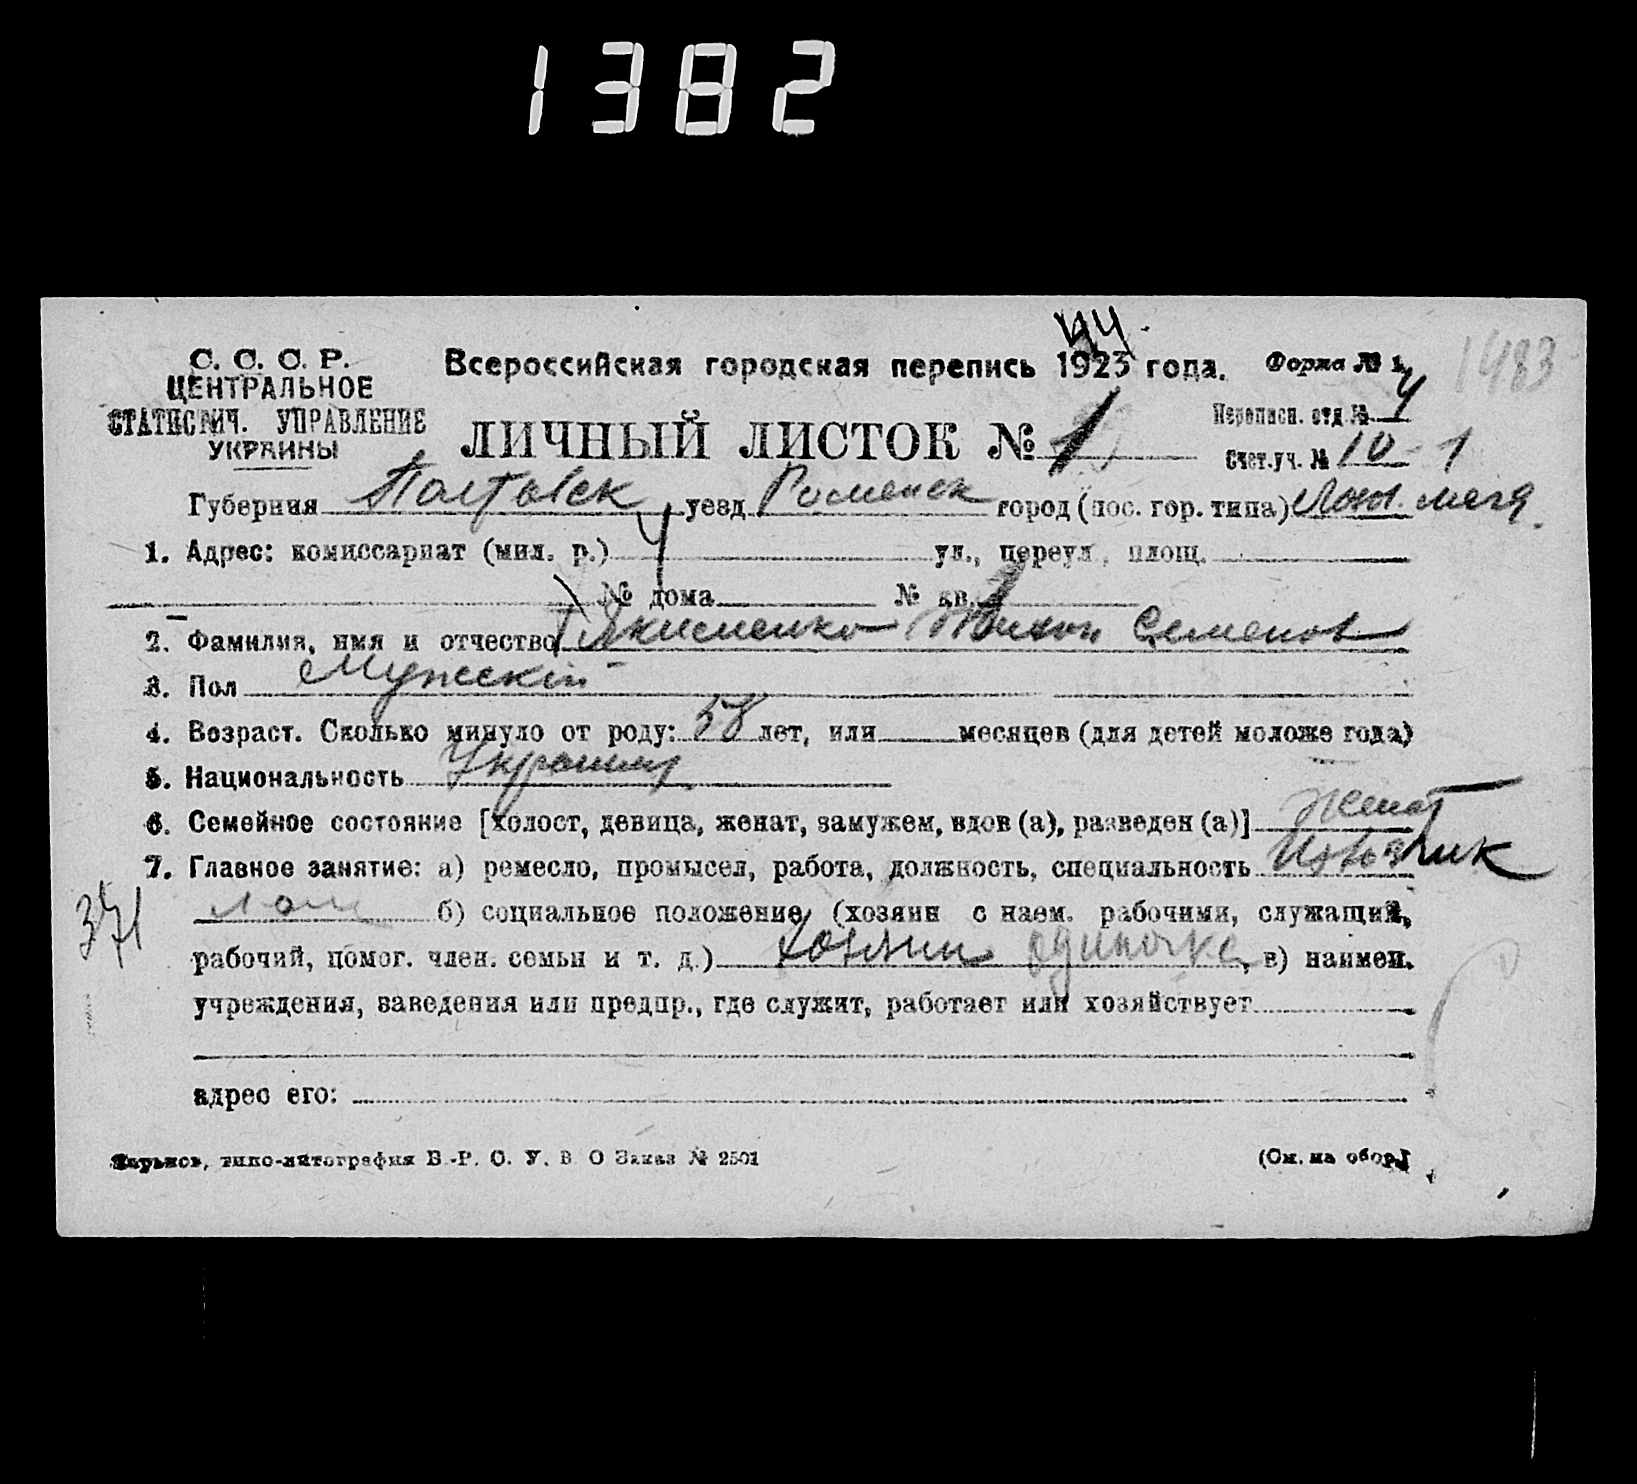 1382
44
С. С. С. Р.
ЦЕНТРАЛЬНОЕ
СТАТИСТИЧ. УПРАВЛЕНИЕ
УКРАИНЫ
Всероссийская городская перепись 1923 года.
Форма № 1.
1483
ЛИЧНЫЙ ЛИСТОК № 1
Переписн. отд. № 4
Счет.уч. № 10 - 1
Губерния Полтавск уезд Роменск город (пос. гор. типа)
1. Адрес: комиссариат (мил. р.) ул., переул., площ.
№ дома № кв.
2. Фамилия, имя и отчество Якименко Тихон Семенов
3. Пол Мужский
4. Возраст. Сколько минуло от роду: 58 лет, или месяцев (для детей моложе года)
5. Национальность
6. Семейное состояние [холост, девица, женат, замужем, вдов (а), разведен (а)] Женат
7. Главное занятие: а) ремесло, промысел, работа, должность, специальность Извозчик
371
лом б) социальное положение (хозяин с наем. рабочими, служащий,
рабочий, помог. член. семьи и т. д.) хозяин одиночка, в) наимен.
учреждения, заведения или предпр., где служит, работает или хозяйствует
адрес его:
Харьков, типо-литография В.-Р. О. У. В. О Заказ № 2501
(См. на обор.)